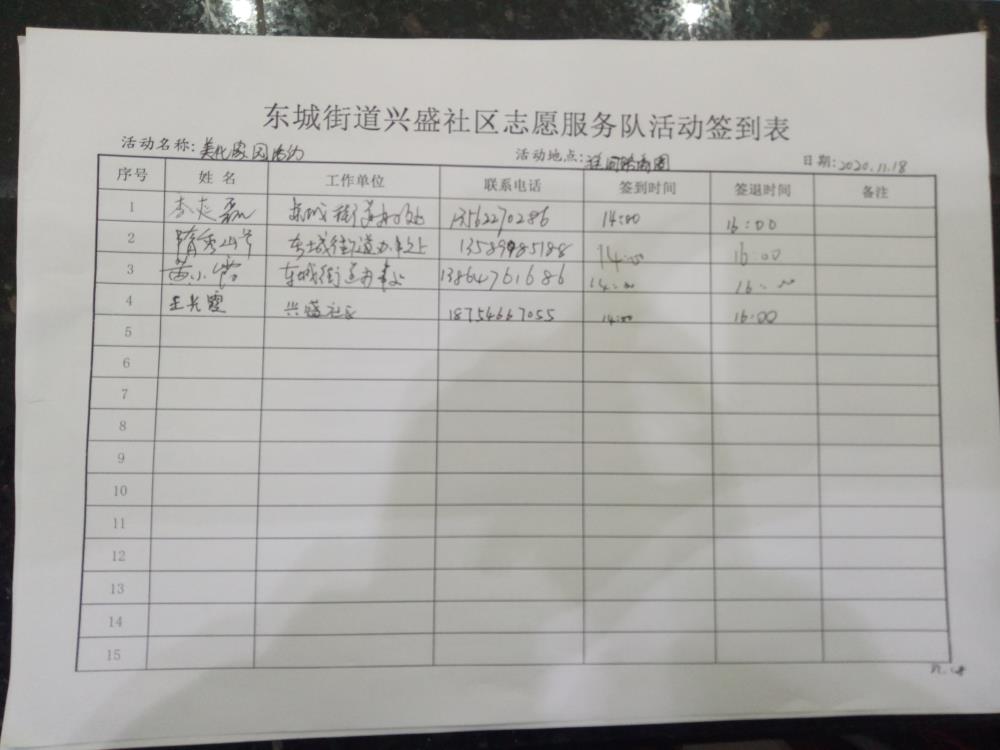 东城街道兴盛社区志愿服务队活动签到表
活动名称：美化家园活动 活动地点： 日期：2020.11.18
序号 姓名 工作单位 联系电话 签到时间 签退时间 备注
1 东城街道办事处 13562270286 14:00 16:00
2 隋秀 东城街道办事处 13589985188 14:00 16:00
3 黄小 东城街道办事处 13864761686 14:00 16:00
4 王兴霞 兴盛社区 18754667055 14:00 16:00
5
6
7
8
9
10
11
12
13
14
15